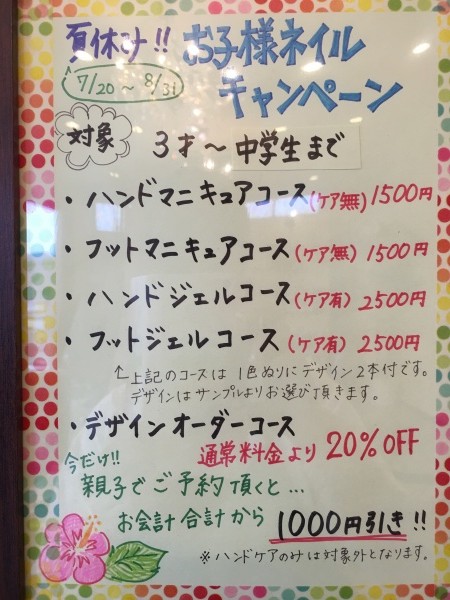 夏休み!! お子様ネイル
7/20～8/31 キャンペーン
対象 3才～中学生まで
・ハンドマニキュアコース(ケア無)1500円
・フットマニキュアコース(ケア無)1500円
・ハンドジェルコース(ケア有)2500円
・フットジェルコース(ケア有)2500円
↑上記のコースは1色ぬりにデザイン2本付です。
デザインはサンプルよりお選び頂きます。
・デザインオーダーコース
通常料金より20%OFF
今だけ!!
親子でご予約頂くと…
お会計合計から1000円引き!!
※ハンドケアのみは対象外となります。